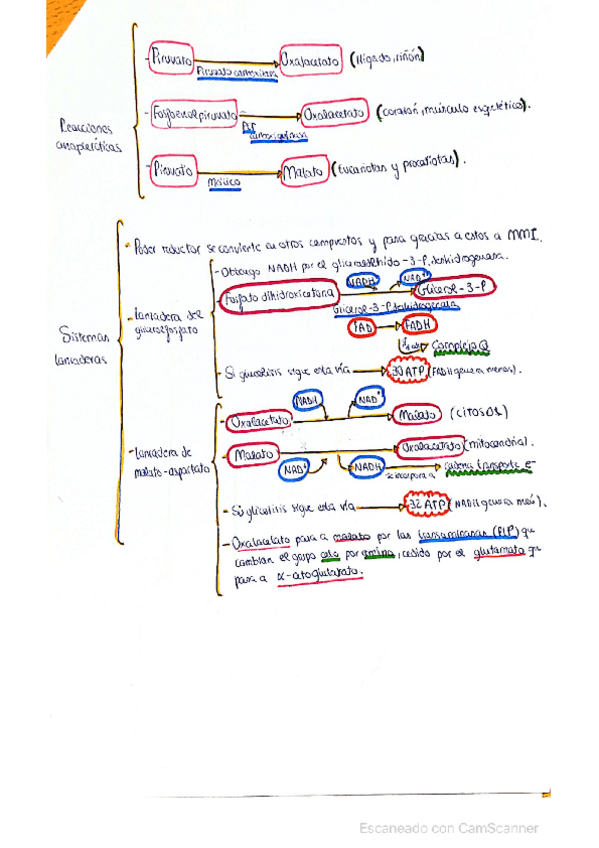 Reacciones anapleróticas
- Piruvato → Oxalacetato (Hígado, riñón)
Piruvato carboxilasa
- Fosfoenolpiruvato → Oxalacetato (corazón, músculo esquelético).
PEP carboxiquinasa
- Piruvato → Malato (Eucariotas y procariotas).
málico
Sistemas lanzaderas
- Poder reductor se convierte en otros compuestos y para gracias a estos a MMI.
- Lanzadera del glicerolfosfato
- Obtengo NADH por el gliceraldehído-3-P. deshidrogenasa.
NADH NAD+
- Fosfato dihidroxicetona → Glicerol-3-P
Glicerol-3-P deshidrogenasa
FAD → FADH
Complejo Q
- Si glucolisis sigue esta vía → 30 ATP (FADH genera menos).
- Lanzadera de malato-aspartato
NADH NAD+
- Oxalacetato → Malato (CITOSOL)
- Malato → Oxalacetato (mitocondrial).
NAD+ NADH → cadena transporte e-
se incorpora a
- Si glicolisis sigue esta vía → 32 ATP (NADH genera más).
- Oxalacetato para a malato por las transaminasas (PLP) que
cambian el grupo ceto por amino, cedido por el glutamato que
para a α-cetoglutarato.
Escaneado con CamScanner